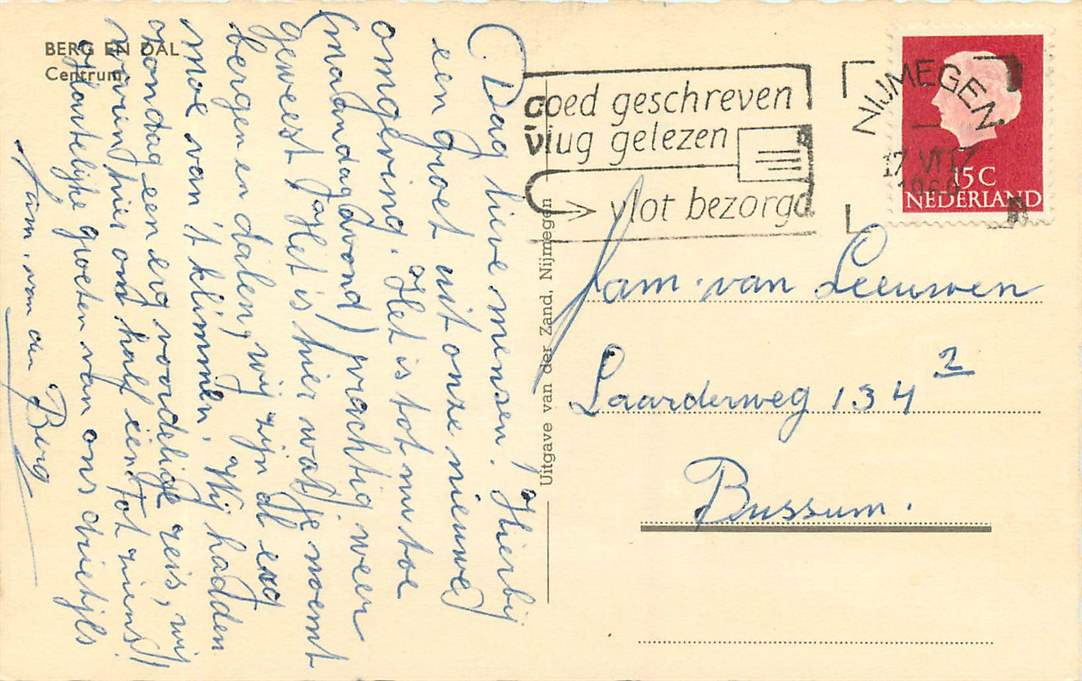 BERG EN DAL
Centrum.
Dag lieve mensen! Hierbij
een groet uit onze nieuwe
omgeving. Het is tot nu toe
(maandagavond) prachtig weer
geweest. Het is hier wat je noemt
bergen en dalen, wij zijn al erg
moe van 't klimmen. Wij hadden
zondag een erg voordelige reis, wij
waren hier om half één. Tot ziens!
Hartelijke groeten van ons drietjes
Fam. van den Berg
Uitgave van der Zand, Nijmegen
goed geschreven
vlug gelezen
vlot bezorgd
NIJMEGEN
17.VII.17
196
15 C
NEDERLAND
Fam. van Leeuwen
Laarderweg 134 2
Bussum.